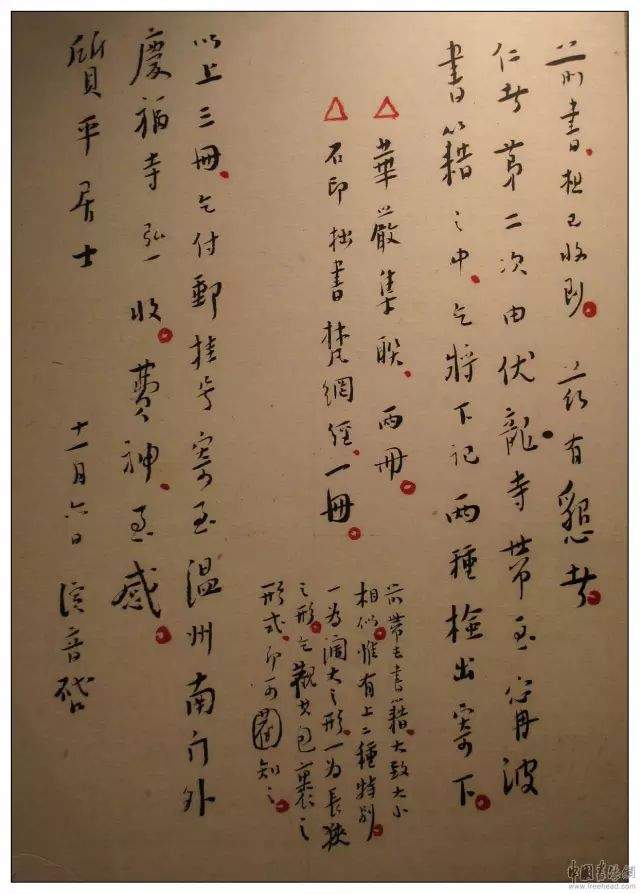 前書、想已收到。兹有懇者。
仁者第二次由伏龍寺帶至甯波
書籍之中、乞將下記兩種檢出寄下。
△華嚴集聯、兩冊。
△石印拙書梵網經、一冊。
前帶去書籍、大致大小
相似、惟有上二種特別。
一為闊大之形、一為長狹
之形。乞觀其包裹之
形式、即可知之。
以上三冊、乞付郵挂号寄至溫州南门外
慶福寺弘一收。費神、至感。
質平居士
十一月六日 演音啓
中国书法网
www.freehead.com